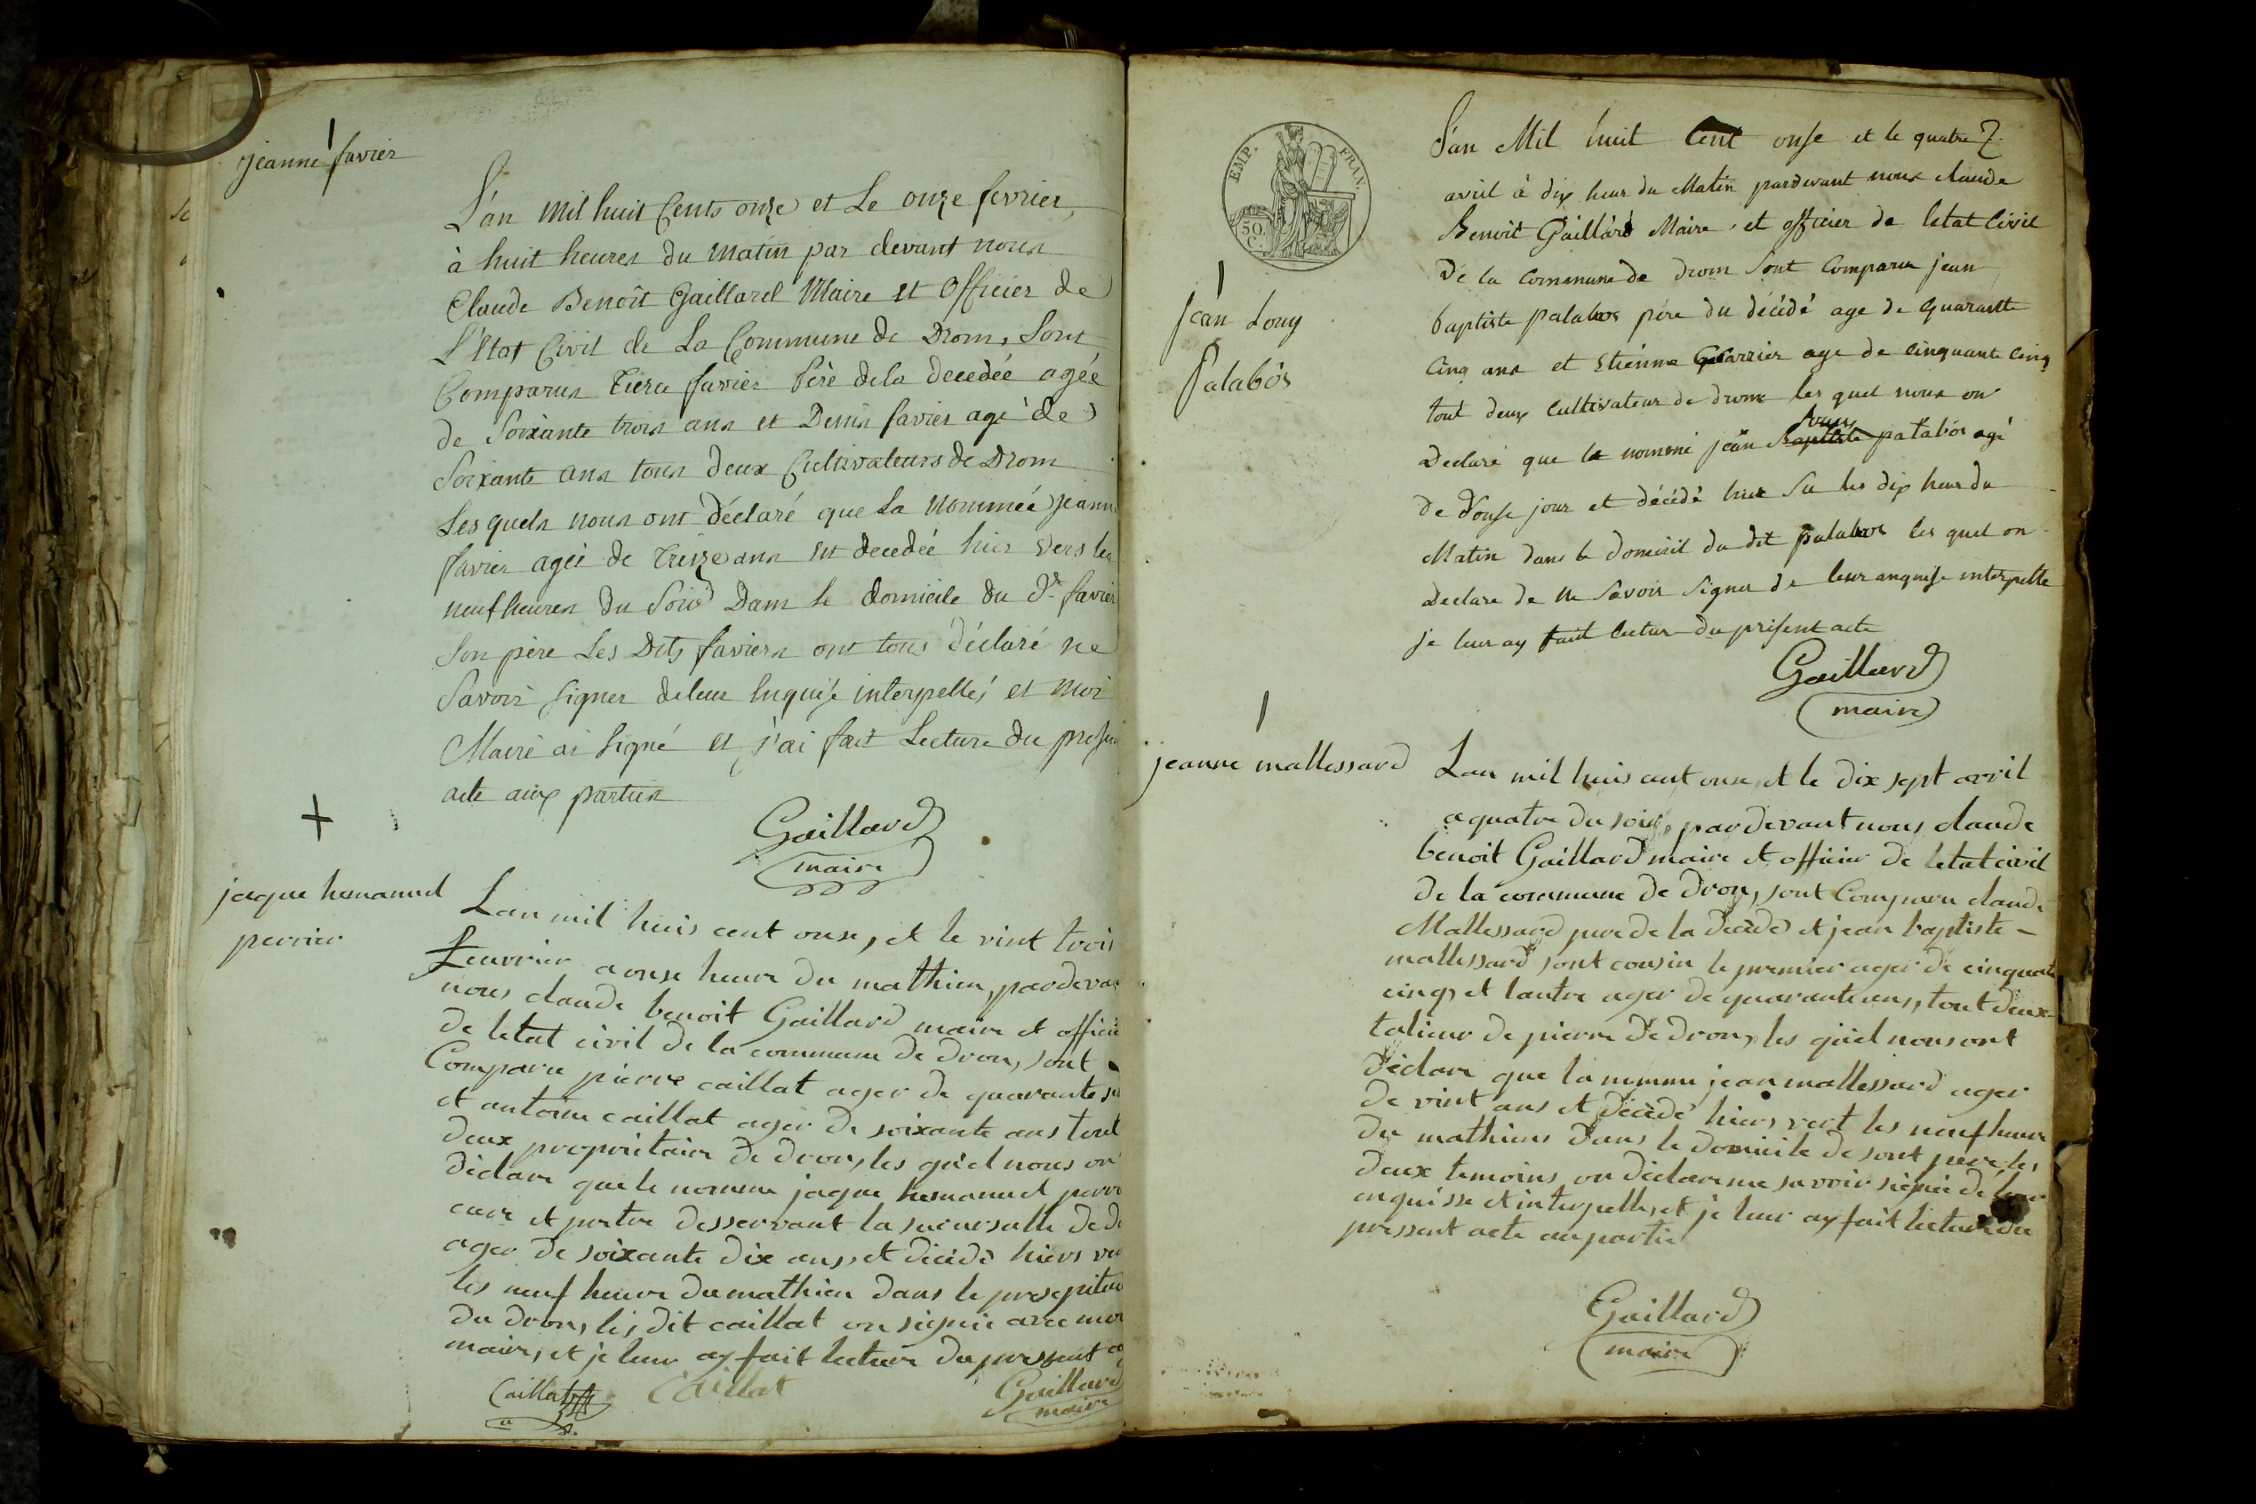 jeanne favier
L'an mil huit Cents onze et Le onze fevrier,
à huit heures du matin par devant nous
Claude Benoît Gaillard Maire et Officier de
L'Etat Civil de La Commune de Drom, Sont
Comparus Piere favier Père dela decedée agée
de Soixante trois ans et Denis favier agé de
Soixante ans tous deux Cultivateurs de Drom
Les quels nous ont déclaré que La Nommée jeanne
favier agée de Treize ans est decedée hier vers les
neuf heures du Soir Dans le domicile du dt favier
Son père Les Dits faviers ont tous déclaré ne
Savoir signer deleur Enquise interpellé et moi
Maire ai signé et j'ai fait Lecture du present
acte aux parties
Gaillard
maire
jaque hemanuel
perrier
Lan mil huis cent onse, et le vint trois
feuvrier a onse heure du mathien, pardevant
nous claude benoit Gaillard maire et officier
de letat civil de la commune de dron, sont
Comparu pierre caillat ager de quarante
et antoine caillat ager de soixante ans tout
deux propriitaire de dron, les quel nous on
déclare que le nomme jaque hemanuel perrier
cure et pretre desservant la sucursalle de
ager de soixante dix ans, et décèdé hiers
les neuf heure du mathien dans le presepitaire
du dron, les dit caillat on signie avec moi
maire, et je leur ay fait lecture du pressent
Caillat Caillat Gaillard
maire
EMP. FRAN.
50. C.
jean Louy
Palabôs
L'an Mil huit Cent onse et le quatre
avril à dix heur du Matin pardevant nous claude
Benoit Gaillard Maire et officier de letat Civil
De la Commune de drom Sont Comparu jean
baptiste palabos pére du décédé age de quarante
Cinq ans et Etienne Carrier age de Cinquante Cinq
tout deux Cultivateur de drom les quel nous on
Declaré que le nommé jean Baptiste louy palabôs agé
De Douse jour et décédé hier Su les dix heur du
Matin dans le Domicil du dit palabos les quel on
Declare de ne Savoir Signer de leur anquise interpelle
je leur ay fait Cectur du present acte
Gaillard
maire
jeanne mallessard
Lan mil huis cent onse, et le dix sept avril
a quatre du soir, pardevant nous claude
benoit Gaillard maire et officier de letat civil
de la commune de dron, sont Comparu claude
Mallessard pere de la décédé et jean baptiste -
mallessard sont cousin le premier ager de cinquante
cinq, et lautre ager de quarante ans, tout deux
talieur de pierre de dron, les quel nous ont
déclare que la nomme jean mallessard ager
de vint ans et décèdé hiers vert les neuf heure
du mathiens dans le domicile de sont pere les
deux temoins on déclare ne savoir signie de leur
enquisse et interpelle, et je leur ay fait lecture du
pressent acte au partie
Gaillard
maire